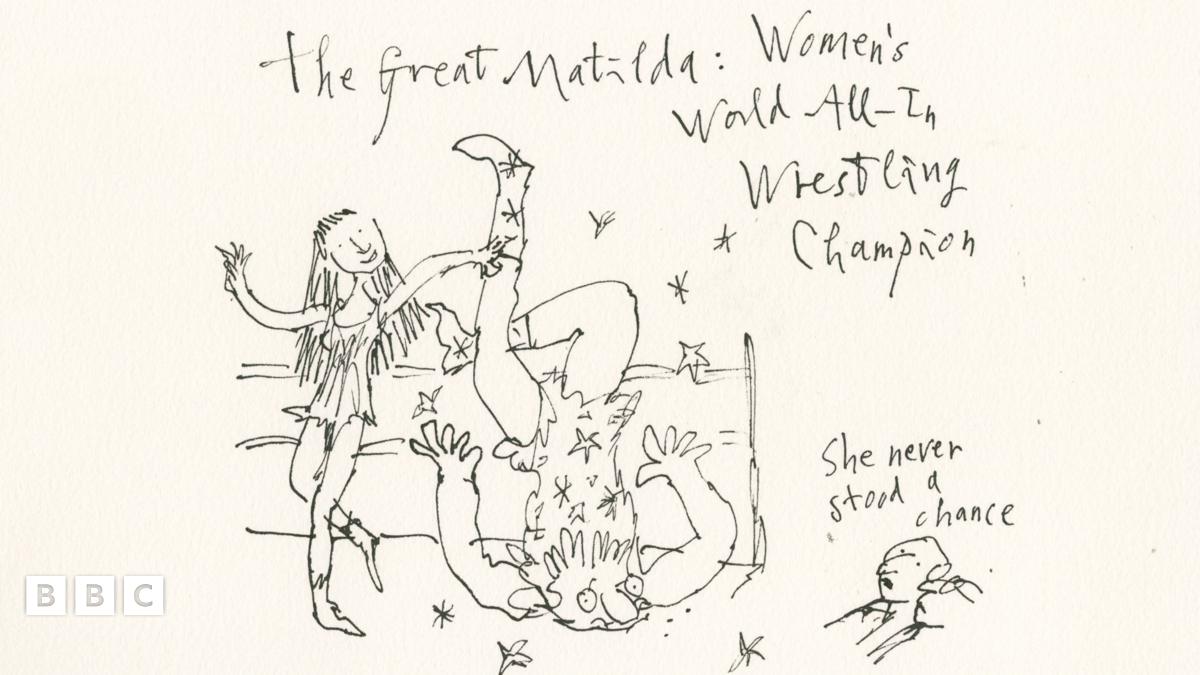 The Great Matilda: Women's
World All-In
Wrestling
Champion
She never
stood a
chance
BBC